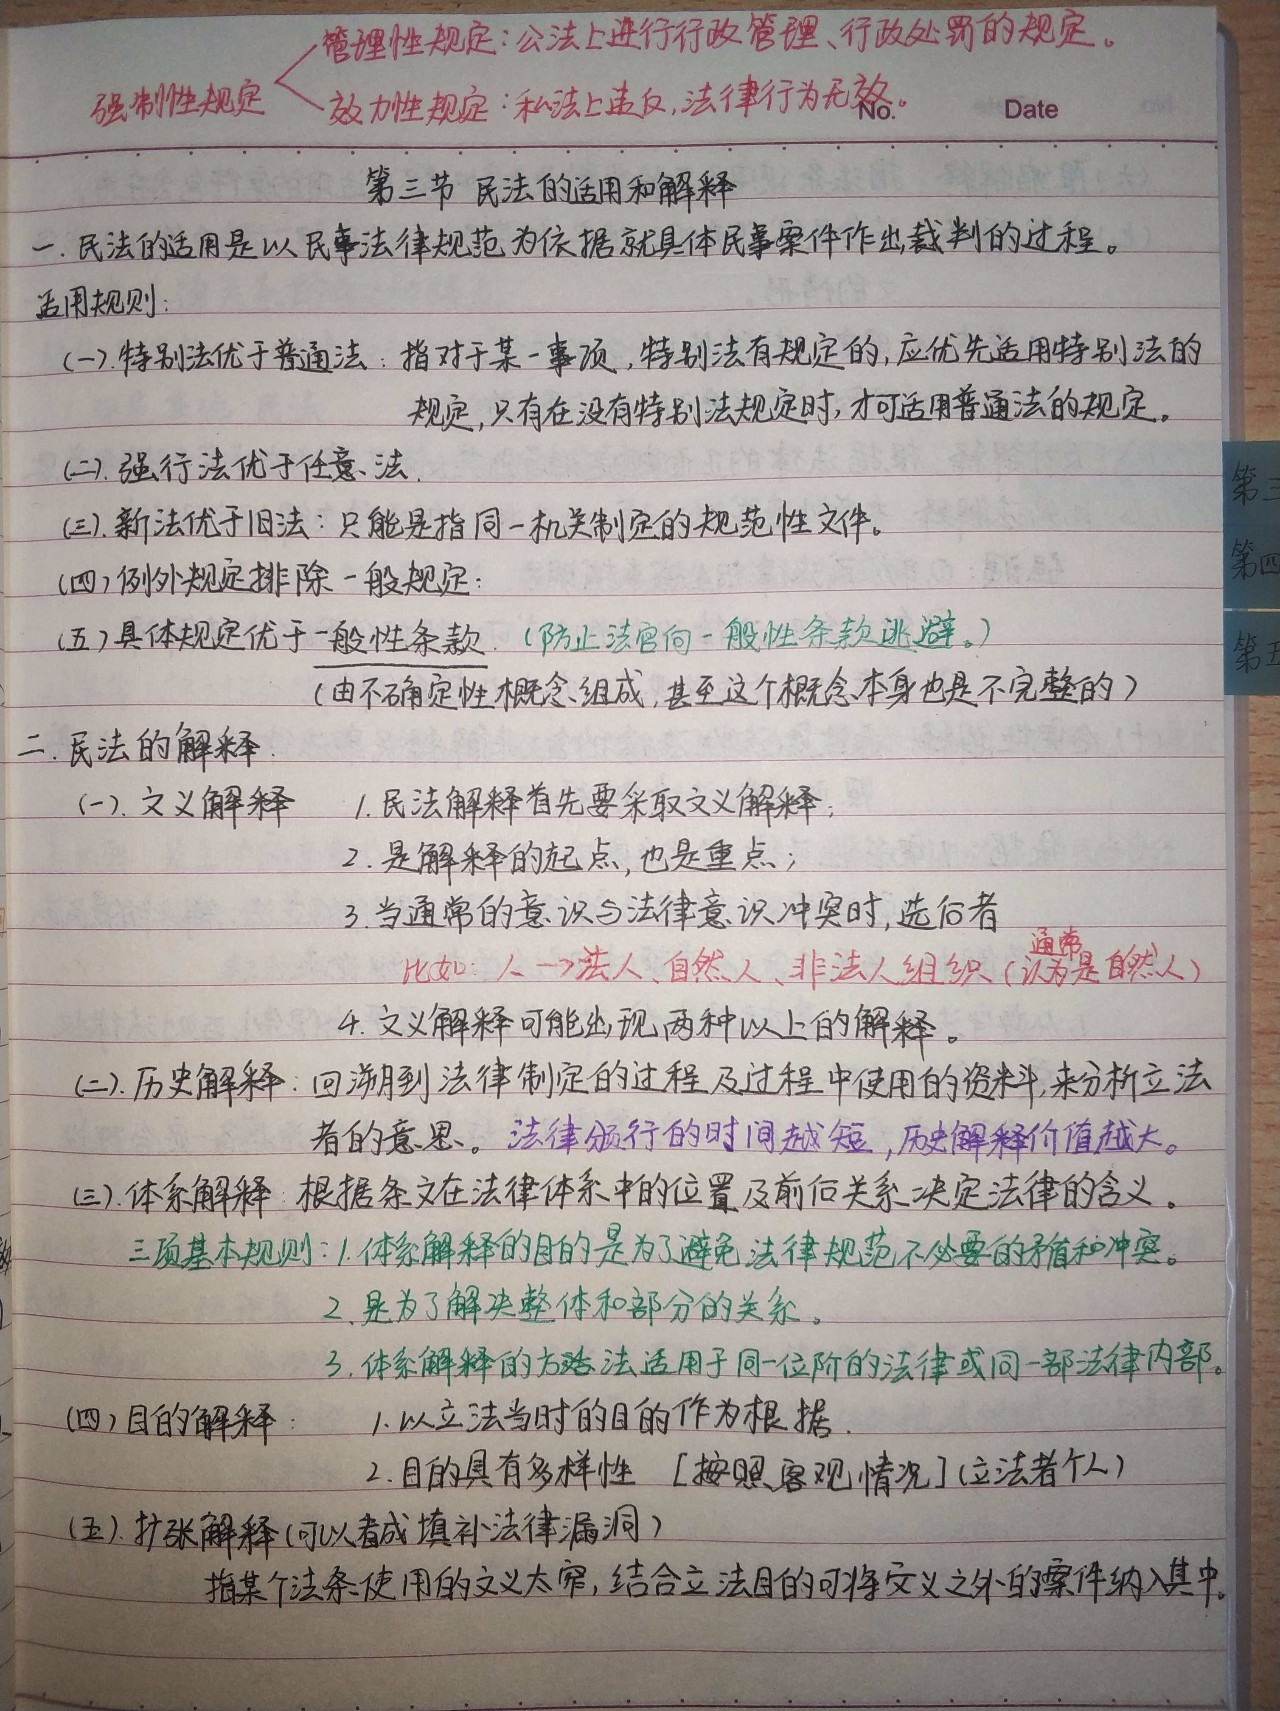 管理性规定：公法上进行行政管理、行政处罚的规定。
强制性规定
效力性规定：私法上违反，法律行为无效。
No. Date
第三节 民法的适用和解释
一. 民法的适用是以民事法律规范为依据就具体民事案件作出裁判的过程。
适用规则：
(一).特别法优于普通法：指对于某一事项，特别法有规定的，应优先适用特别法的
规定，只有在没有特别法规定时，才可适用普通法的规定。
(二).强行法优于任意法.
(三).新法优于旧法：只能是指同一机关制定的规范性文件。
(四)例外规定排除一般规定：
(五)具体规定优于一般性条款. (防止法官向一般性条款逃避。)
(由不确定性概念组成，甚至这个概念本身也是不完整的)
二. 民法的解释.
(一).文义解释 1.民法解释首先要采取文义解释；
2.是解释的起点，也是重点；
3.当通常的意识与法律意识冲突时，选后者
通常
比如：人→法人、自然人、非法人组织(认为是自然人)
4.文义解释可能出现两种以上的解释。
(二).历史解释：回溯到法律制定的过程及过程中使用的资料，来分析立法
者的意思。法律颁行的时间越短，历史解释价值越大。
(三).体系解释：根据条文在法律体系中的位置及前后关系决定法律的含义。
三项基本规则：1.体系解释的目的是为了避免法律规范不必要的矛盾和冲突。
2.是为了解决整体和部分的关系。
3.体系解释的方法适用于同一位阶的法律或同一部法律内部。
(四)目的解释： 1.以立法当时的目的作为根据.
2.目的具有多样性 [按照客观情况](立法者个人)
(五).扩张解释(可以看成填补法律漏洞)
指某个法条使用的文义太窄，结合立法目的可将文义之外的案件纳入其中。
第三
第四
第五